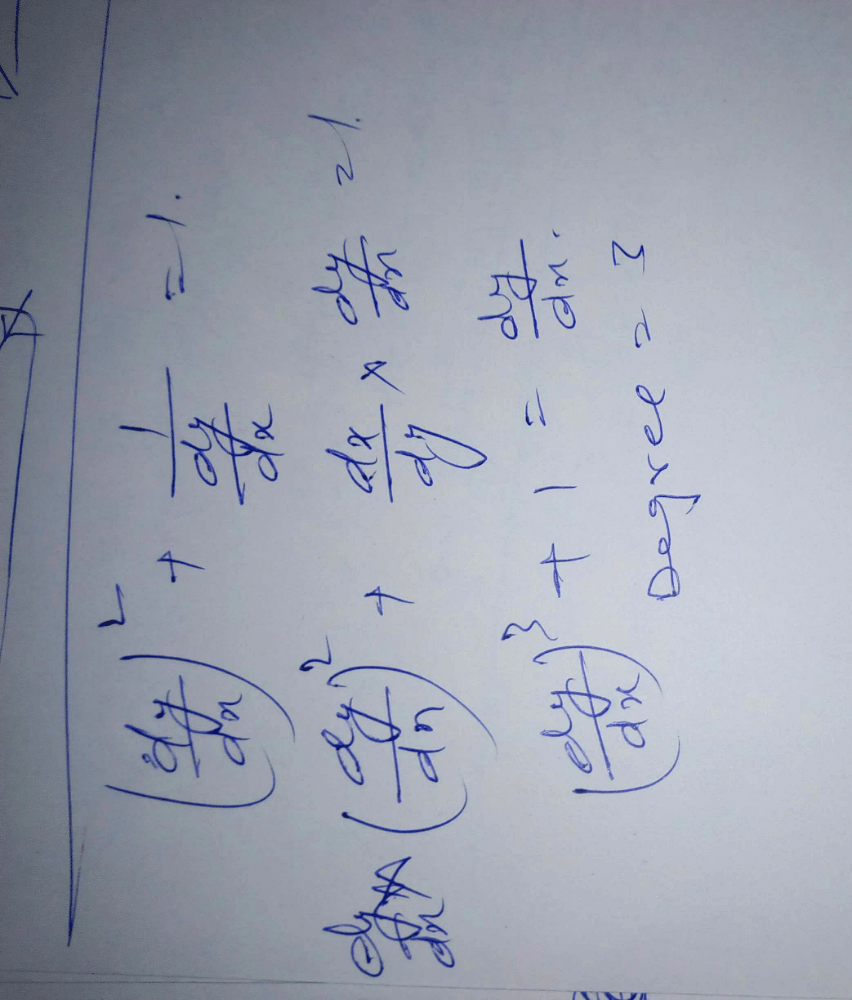 (dy/dx)² + 1/(dy/dx) = 1.
dy/dx × (dy/dx)² + dx/dy × dy/dx = 1.
(dy/dx)³ + 1 = dy/dx.
Degree = 3